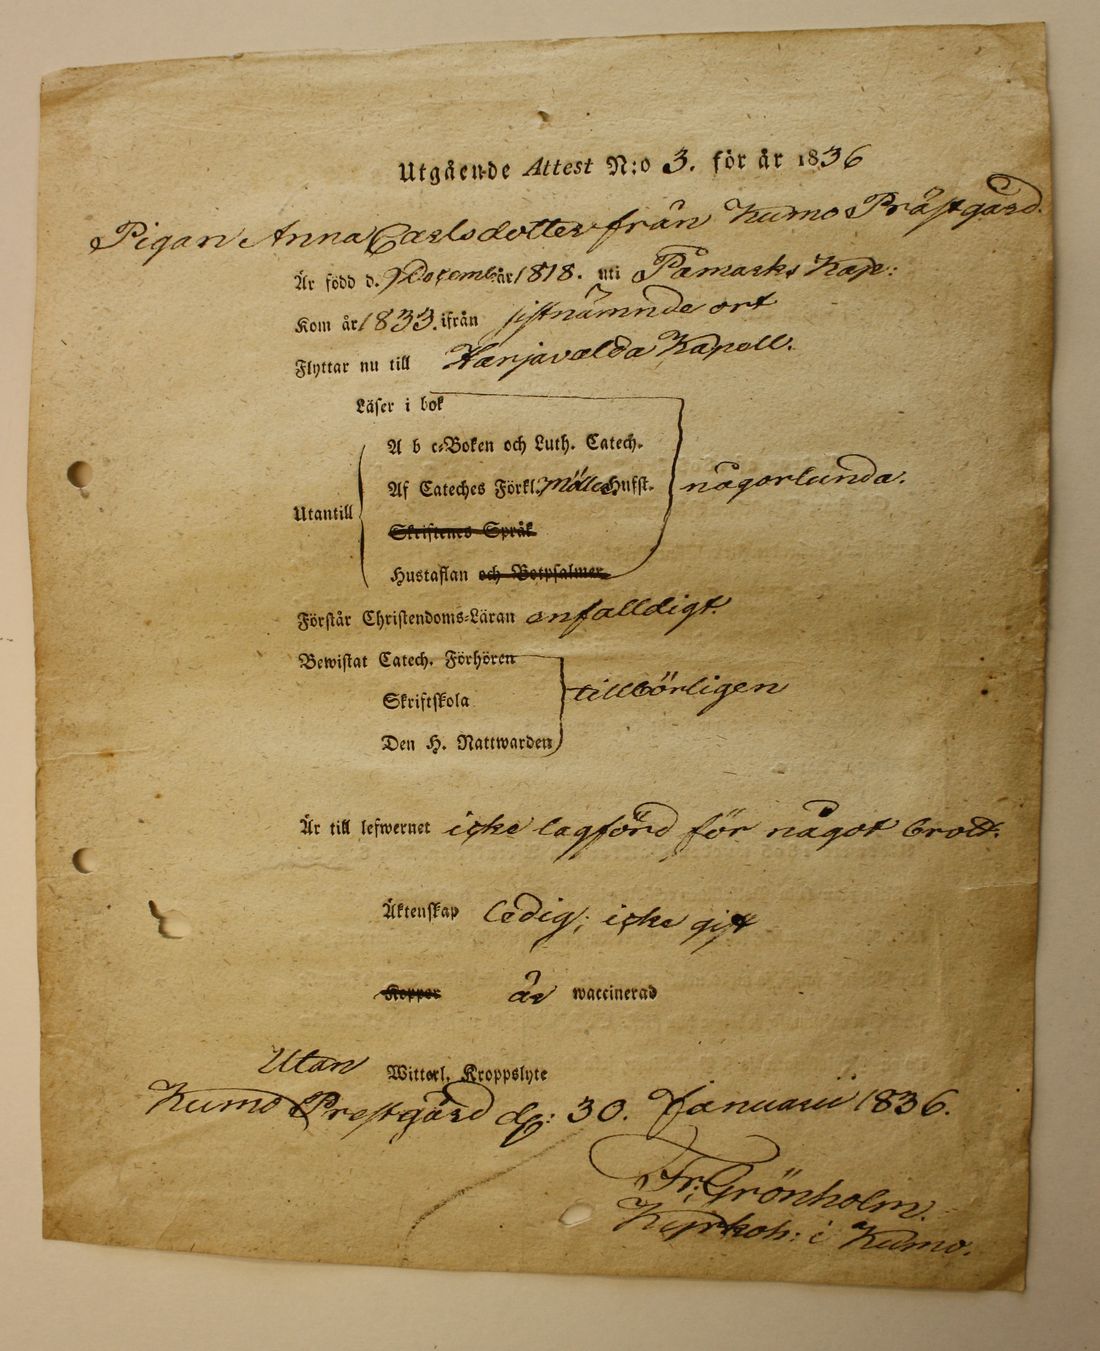 Utgående Attest N:o 3. för år 1836
Pigan Anna Carlsdotter från Kumo Prästgård.
Är född d. 9 Decemb. år 1818. uti Påmarks Kap:
Kom år 1833. ifrån sistnämnde ort
Flyttar nu till Harjavalda Kapell.
Läser i bok
A b c-Boken och Luth. Catech.
Af Cateches Förkl. Hufst. någorlunda.
Utantill
Skriftenes Språk
Hustaflan och Botpsalmer
Förstår Christendoms-Läran enfalldigt.
Bewistat Catech. Förhören
Skriftskola tillbörligen
Den H. Nattwarden
Är till lefwernet icke lagförd för något brott.
Äktenskap ledig; icke gift
Koppor är waccinerad
Utan Witterl. Kroppslyte
Kumo Prestgård d: 30. Januarii 1836.
Fr: Grönholm.
Kyrkoh: i Kumo.